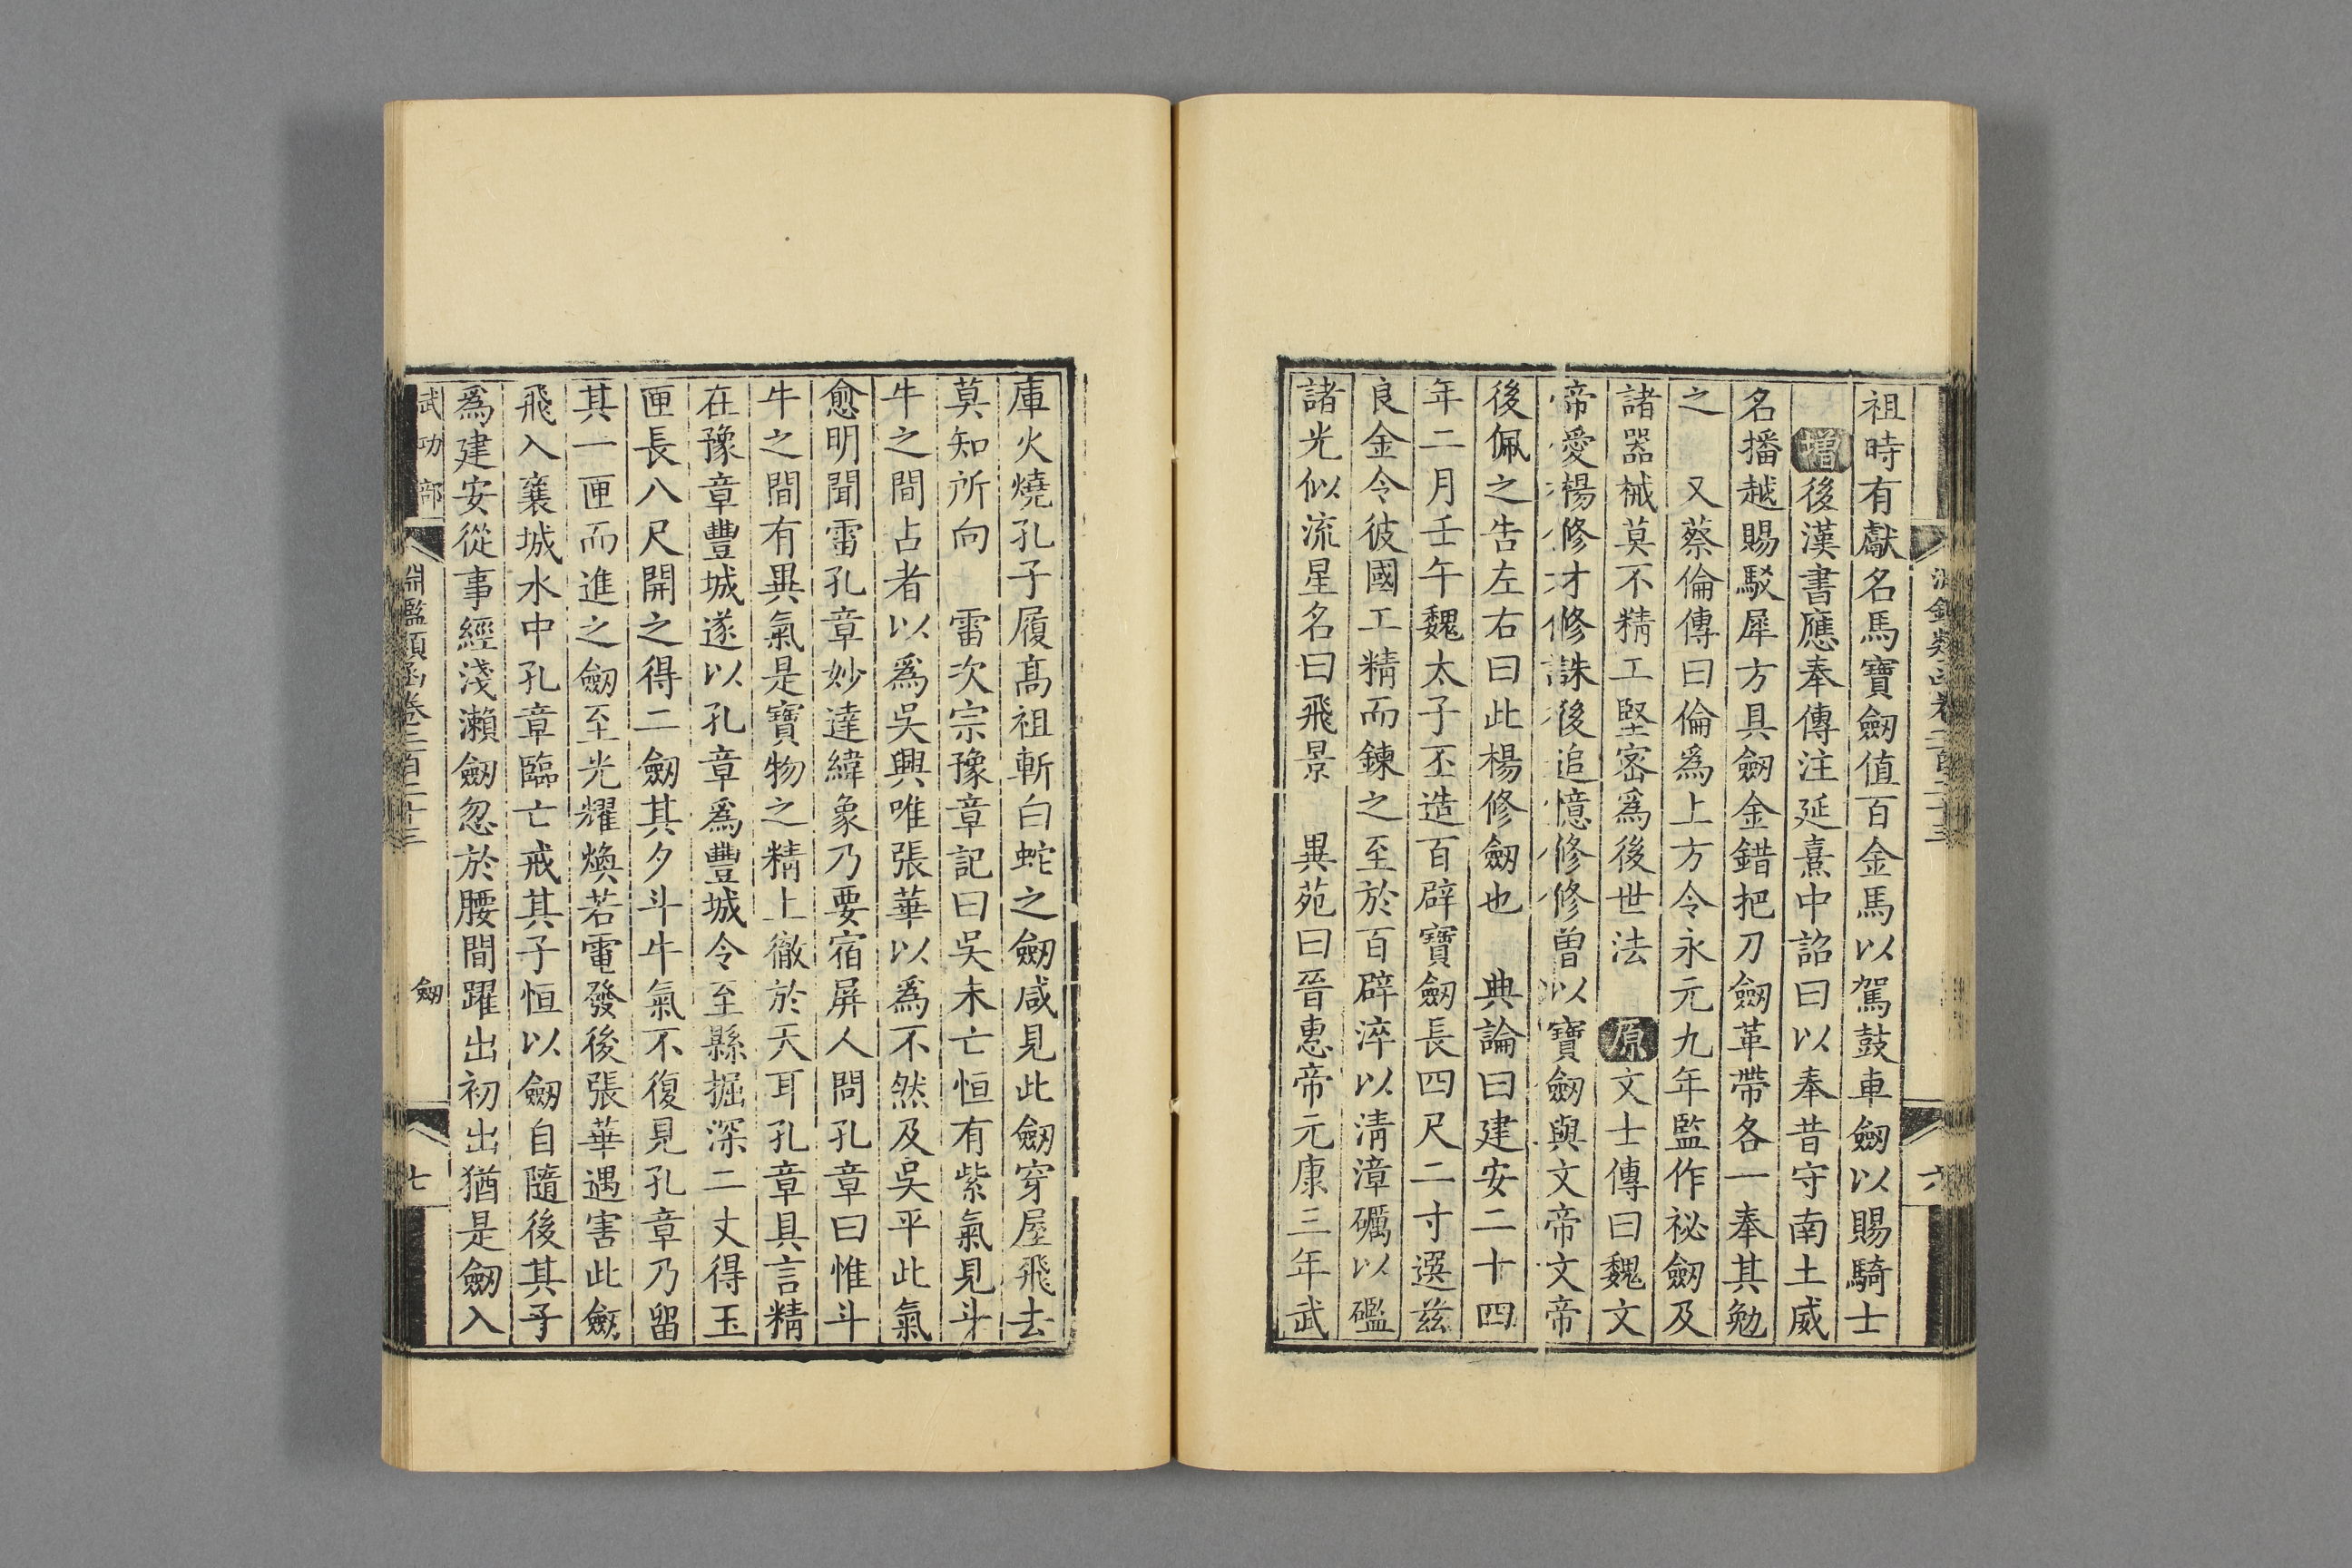 祖時有獻名馬寶劒值百金馬以駕鼓車劒以賜騎士
增後漢書應奉傳注延熹中詔曰以奉昔守南土威
名播越賜駁犀方具劒金錯把刀劒革帶各一奉其勉
之 又蔡倫傳曰倫爲上方令永元九年監作祕劒及
諸器械莫不精工堅密爲後世法 原文士傳曰魏文
帝愛楊修才修誅後追憶修修曾以寶劒與文帝文帝
後佩之告左右曰此楊修劒也 典論曰建安二十四
年二月壬午魏太子丕造百辟寶劒長四尺二寸選茲
良金令彼國工精而鍊之至於百辟淬以清漳礪以礛
諸光似流星名曰飛景 異苑曰晉惠帝元康三年武
六
庫火燒孔子履髙祖斬白蛇之劒咸見此劒穿屋飛去
莫知所向 雷次宗豫章記曰吳未亡恒有紫氣見斗
牛之間占者以爲吳興唯張華以爲不然及吳平此氣
愈明聞雷孔章妙達緯象乃要宿屏人問孔章曰惟斗
牛之間有異氣是寶物之精上徹於天耳孔章具言精
在豫章豐城遂以孔章爲豐城令至縣掘深二丈得玉
匣長八尺開之得二劒其夕斗牛氣不復見孔章乃留
其一匣而進之劒至光耀煥若電發後張華遇害此劒
飛入襄城水中孔章臨亡戒其子恒以劒自隨後其子
爲建安從事經淺瀨劒忽於腰間躍出初出猶是劒入
武功部 淵鑑類函卷二百二十三 劒 七